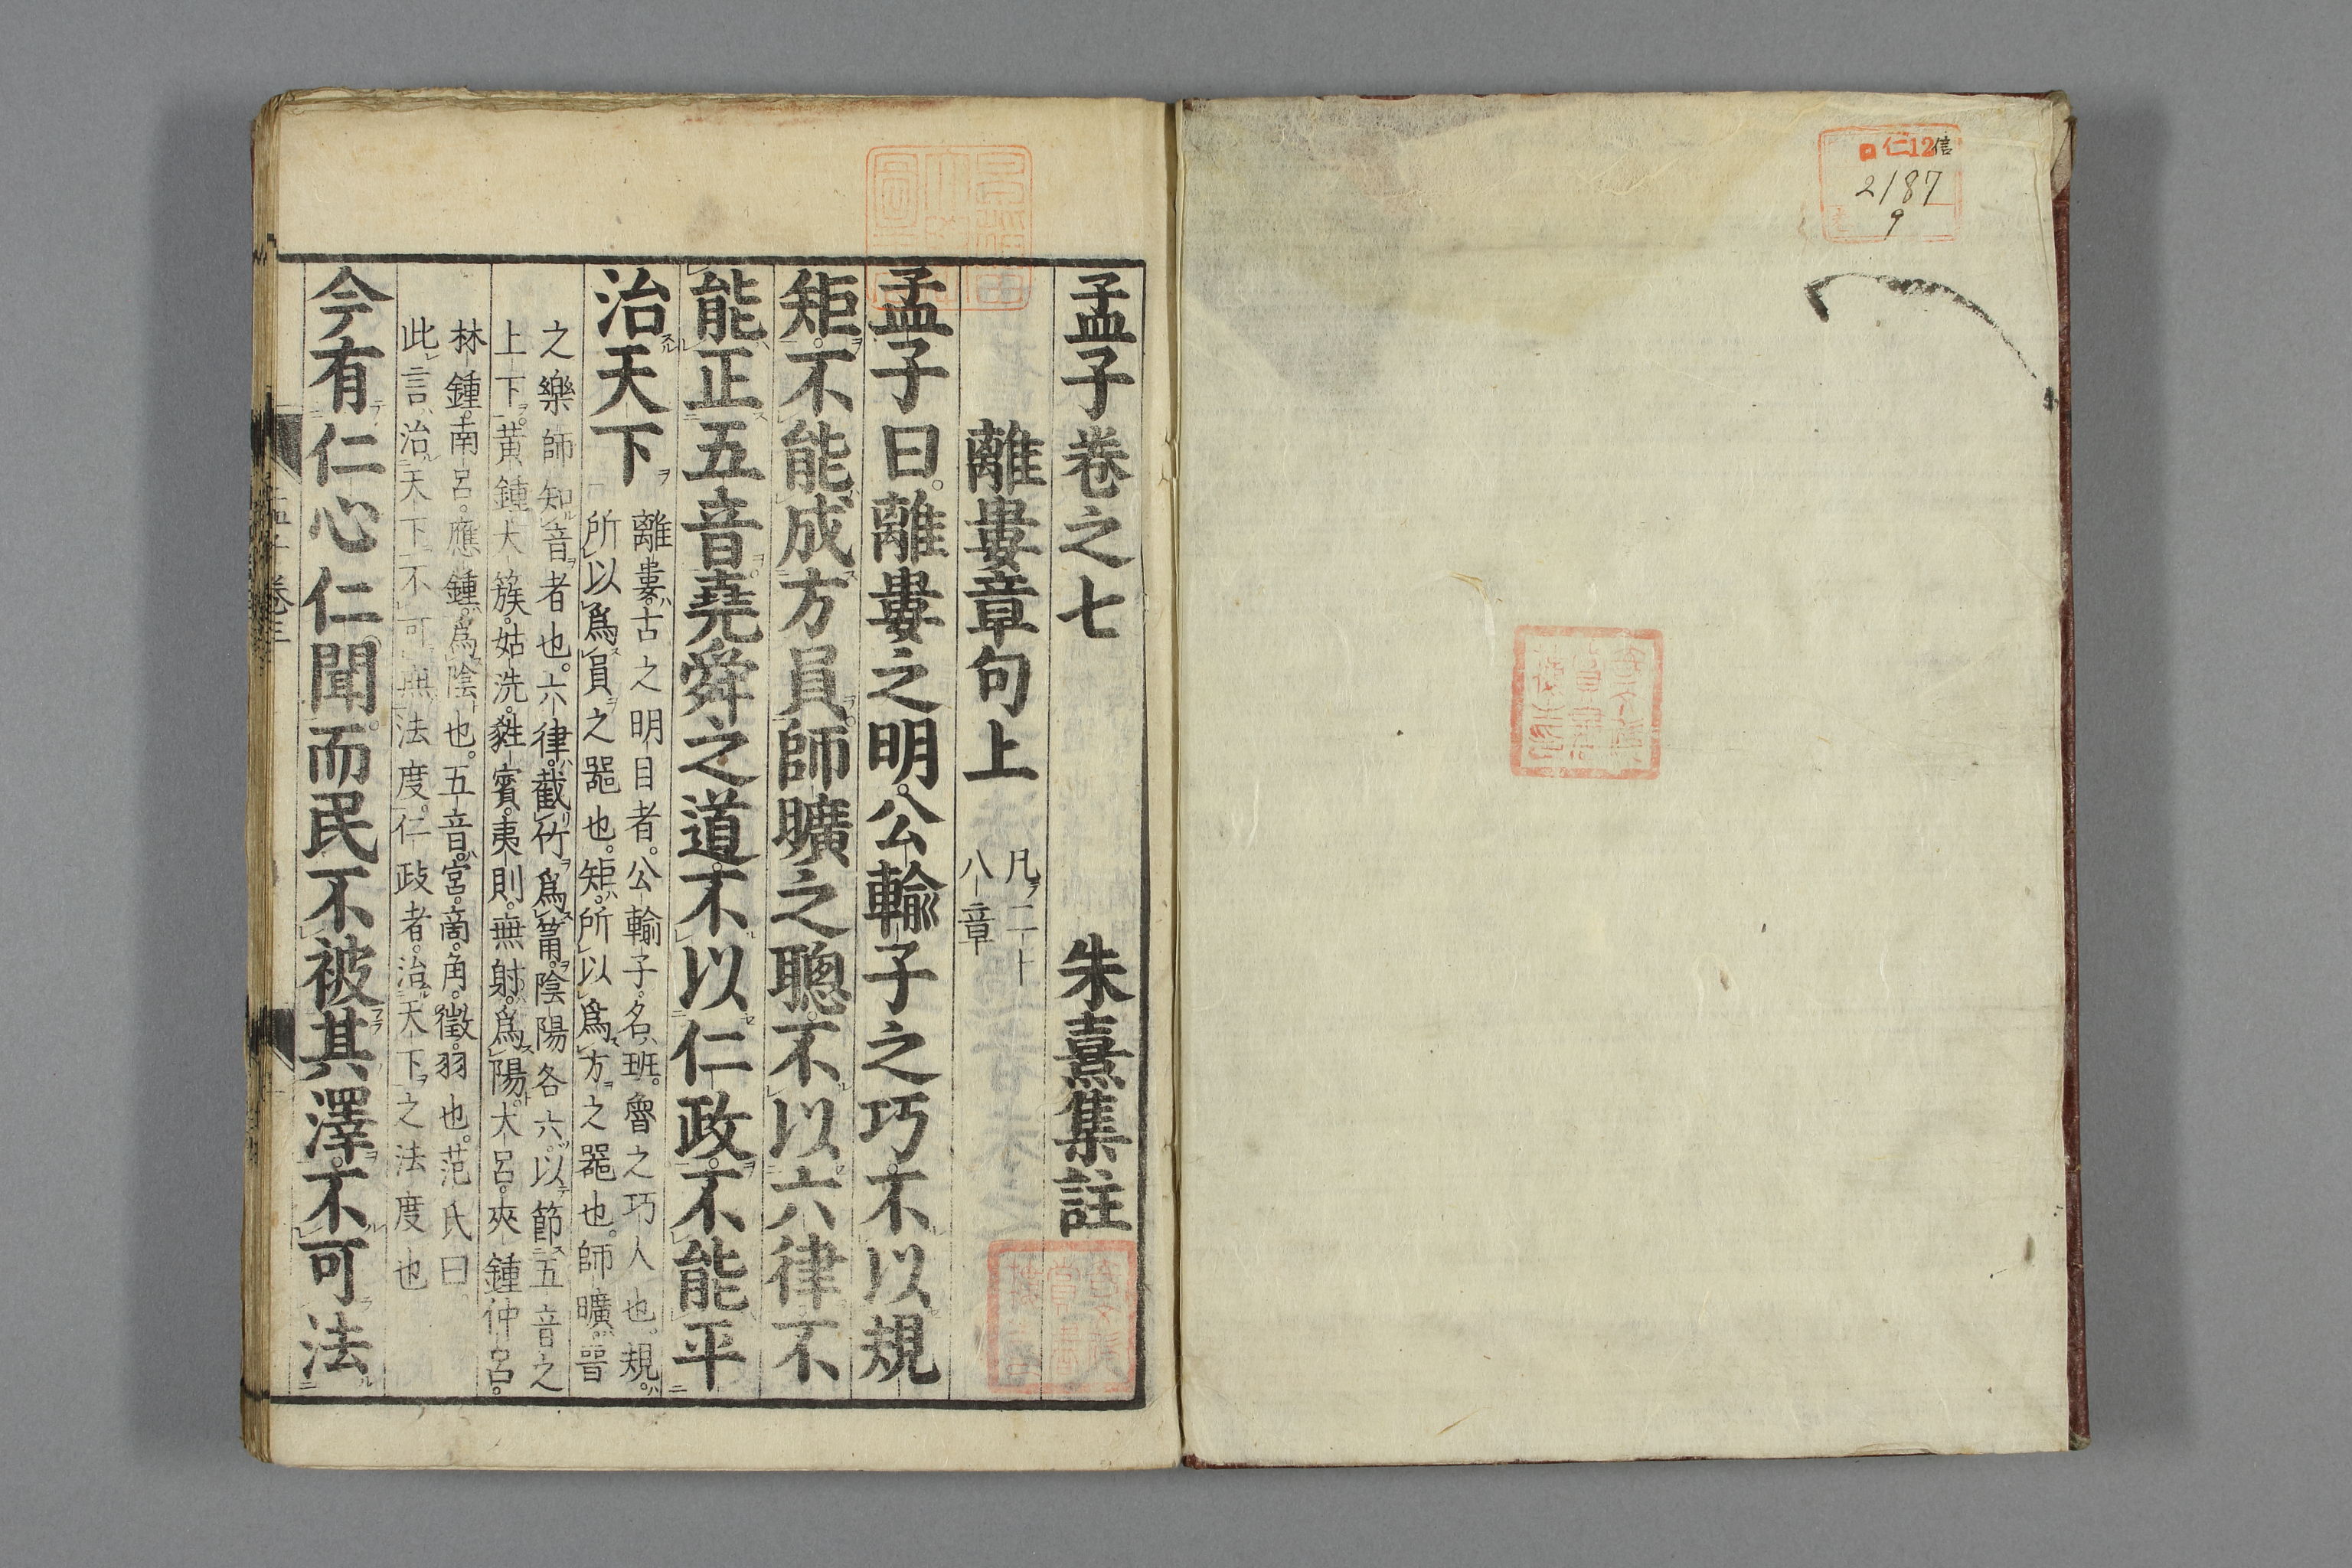 仁12信
2187
9
孟子卷之七 朱熹集註
離婁章句上 凡二十
八章
孟子曰。離婁之明。公輸子之巧。不以規
矩。不能成方員。師曠之聰。不以六律。不
能正五音。堯舜之道。不以仁政。不能平
治天下
離婁。古之明目者。公輸子。名班。魯之巧人也。規。
所以爲員之器也。矩。所以爲方之器也。師曠。晉
之樂師知音者也。六律。截竹爲筩。陰陽各六。以節五音之
上下。黄鍾大簇。姑洗。蕤賓。夷則。無射。爲陽。大呂。夾鍾仲呂。
林鍾。南呂。應鍾。爲陰也。五音。宮。商。角。徵。羽也。范氏曰。
此言治天下不可無法度。仁政者。治天下之法度也
今有仁心仁聞。而民不被其澤。不可法
卷三